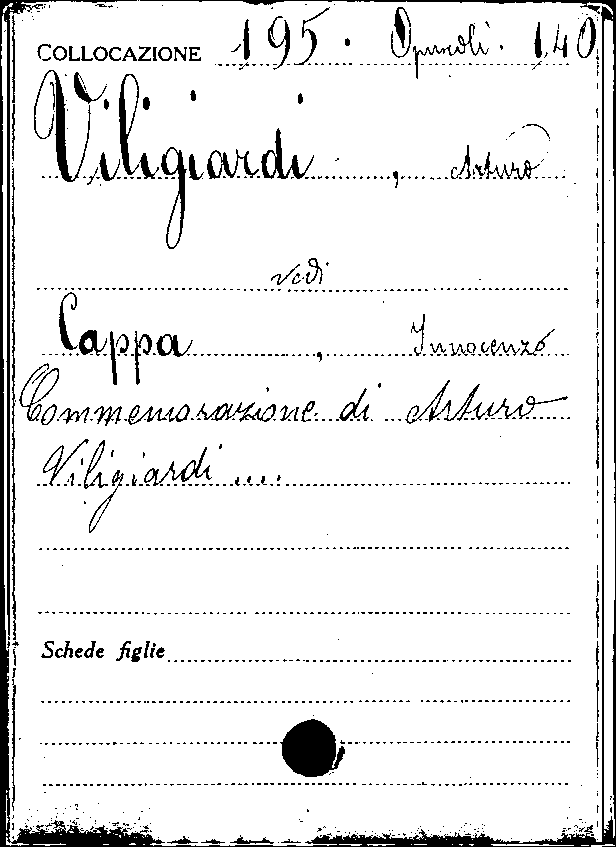 COLLOCAZIONE 195. Opuscoli. 140
Viligiardi, Arturo
vedi
Cappa, Innocenzo
Commemorazione di Arturo
Viligiardi ....
Schede figlie